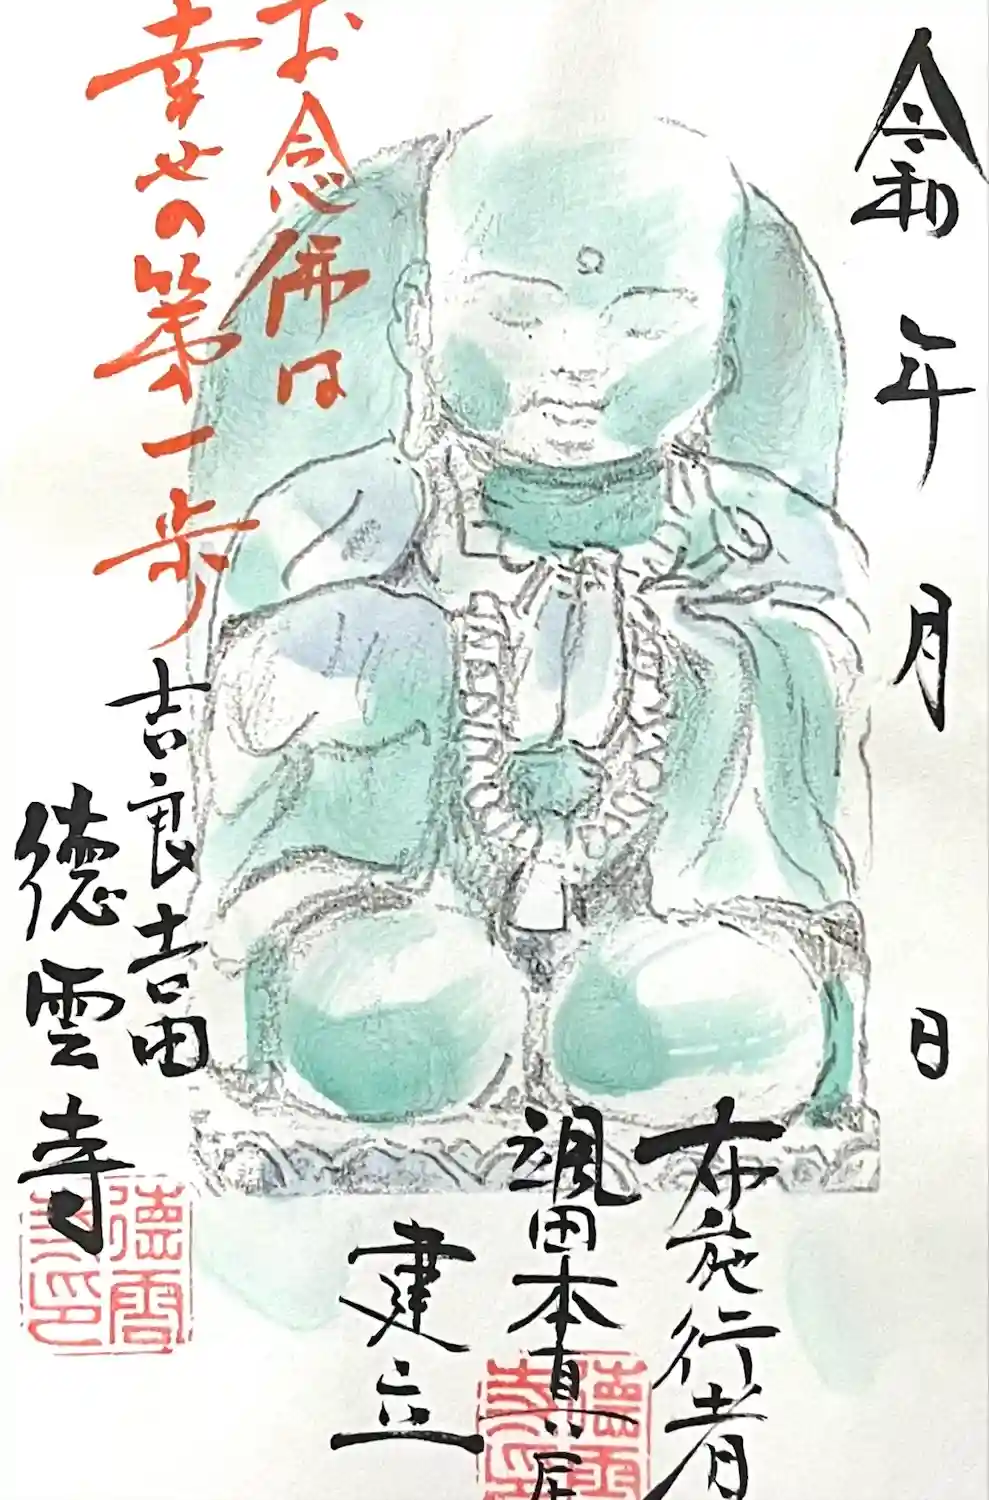 令和 年 月 日
お念佛は
幸せの第一歩
布施行者
颯田本真尼
建立
吉良吉田
徳雲寺
徳雲
寺印
徳雲
寺印